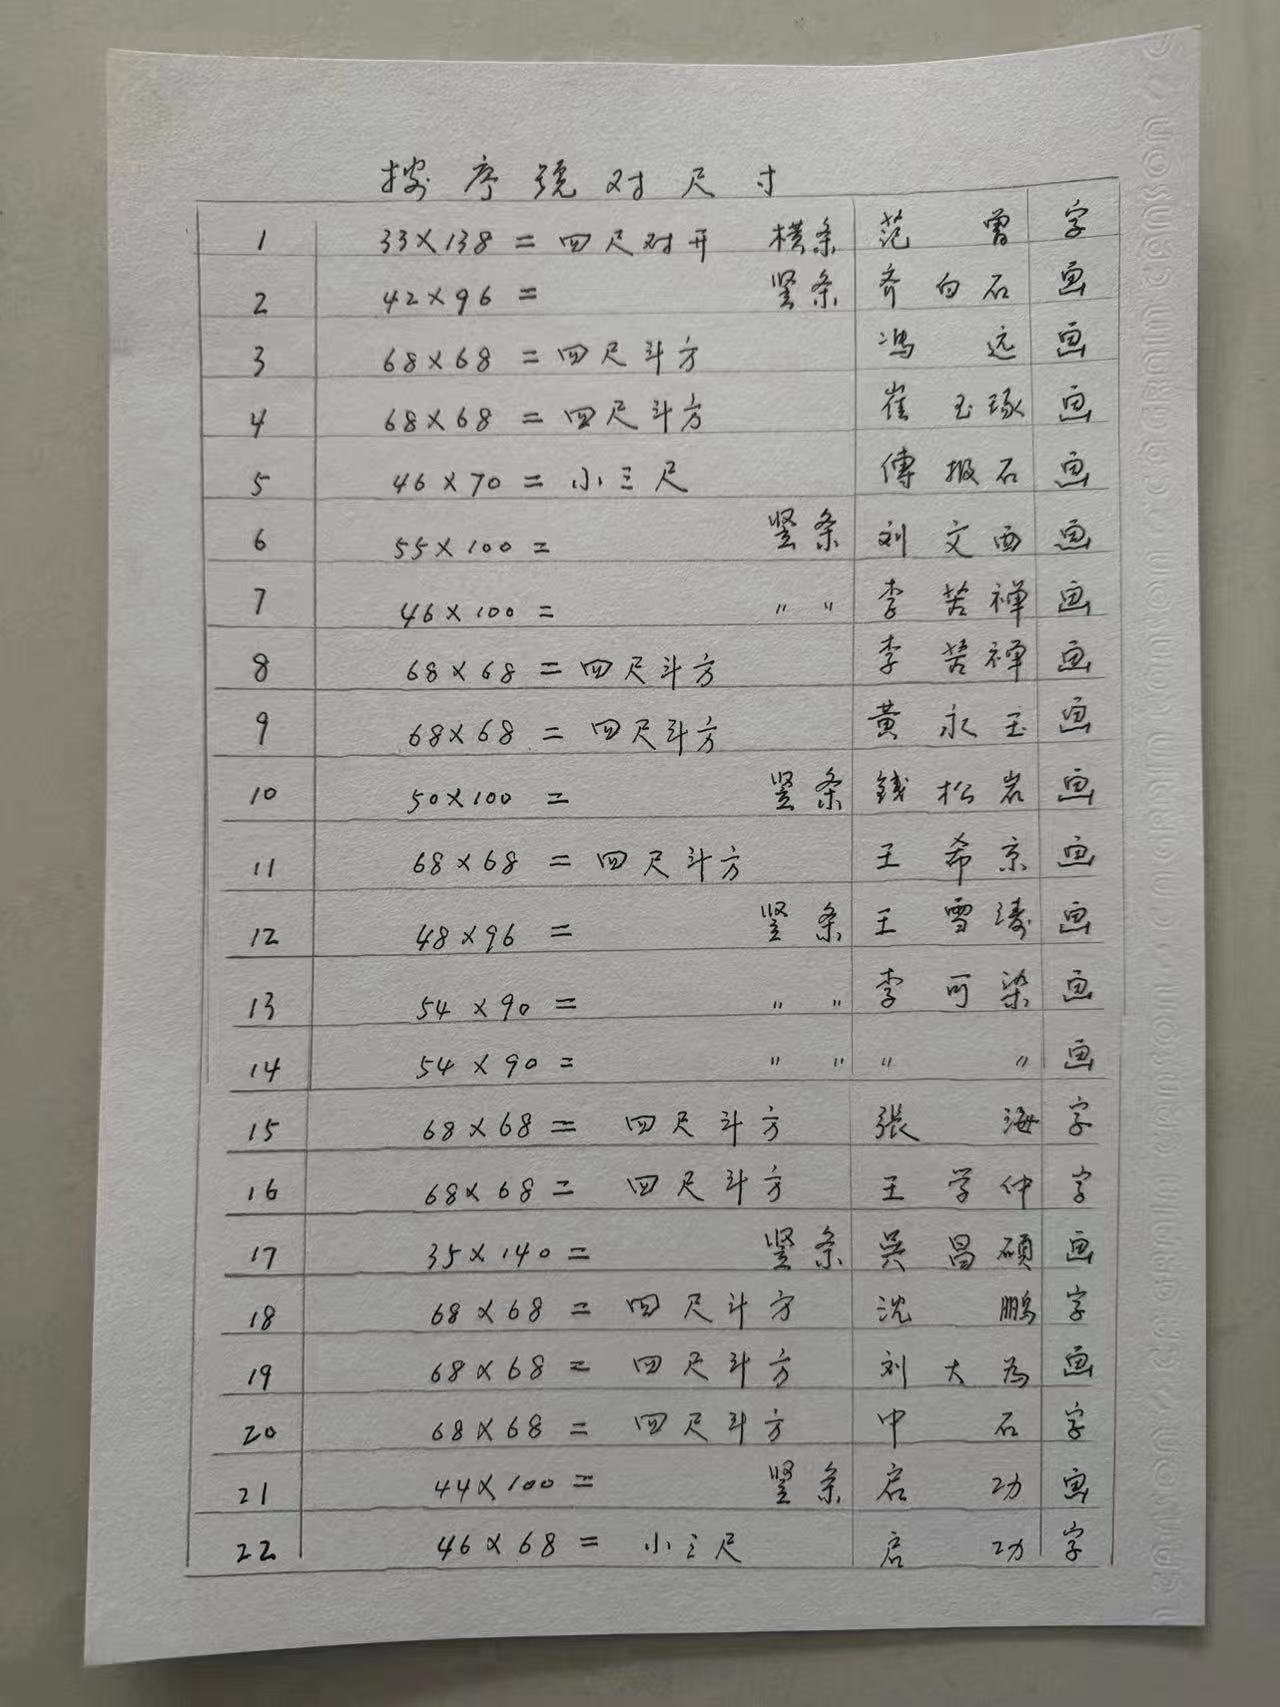 按序號对尺寸
1 33×138 = 四尺对开 横条 范曾 字
2 42×96 = 竖条 齐白石 画
3 68×68 = 四尺斗方 冯远 画
4 68×68 = 四尺斗方 崔玉琢 画
5 46×70 = 小三尺 傅报石 画
6 55×100 = 竖条 刘文西 画
7 46×100 = 〃 〃 李苦禅 画
8 68×68 = 四尺斗方 李苦禅 画
9 68×68 = 四尺斗方 黄永玉 画
10 50×100 = 竖条 錢松岩 画
11 68×68 = 四尺斗方 王希京 画
12 48×96 = 竖条 王雪涛 画
13 54×90 = 〃 〃 李可染 画
14 54×90 = 〃 〃 〃 〃 画
15 68×68 = 四尺斗方 張海 字
16 68×68 = 四尺斗方 王学仲 字
17 35×140 = 竖条 吴昌硕 画
18 68×68 = 四尺斗方 沈鹏 字
19 68×68 = 四尺斗方 刘大为 画
20 68×68 = 四尺斗方 中石 字
21 44×100 = 竖条 启功 画
22 46×68 = 小三尺 启功 字